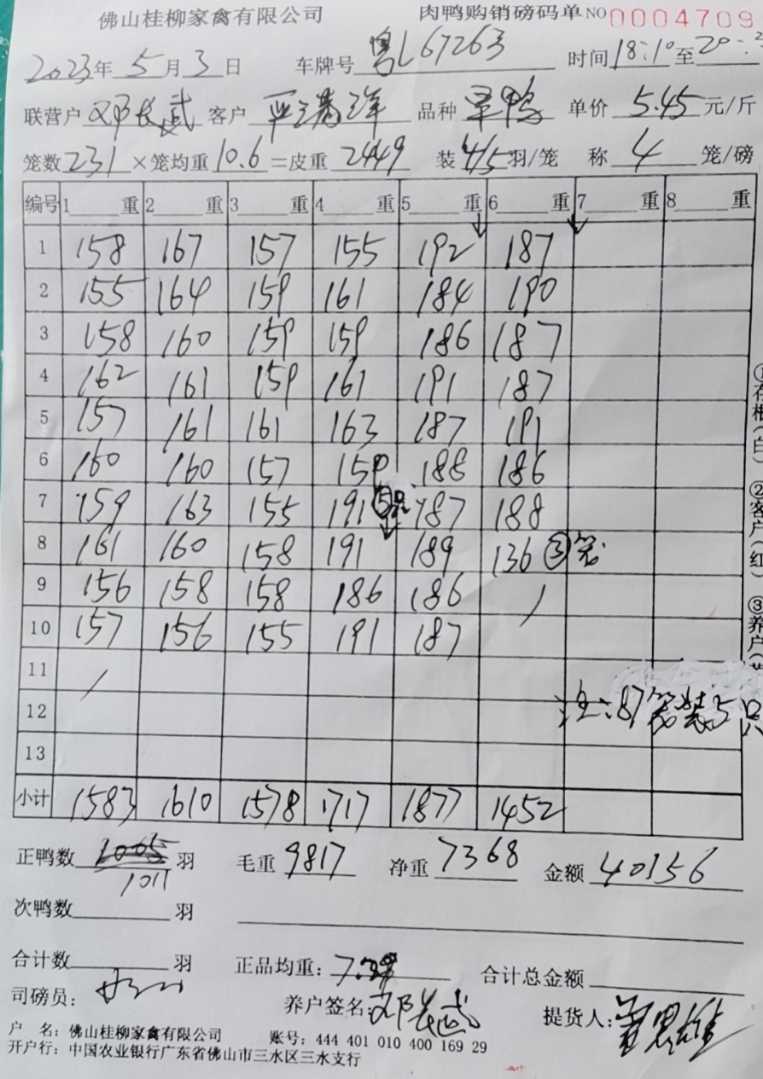 佛山桂柳家禽有限公司 肉鸭购销磅码单 NO 0004709
2023年 5 月 3 日 车牌号 粤L67263 时间 18:10 至 20:2
联营户 邓长武 客户 严满洋 品种 旱鸭 单价 5.45 元/斤
笼数 231 ×笼均重 10.6 =皮重 2449 装 4/5 羽/笼 称 4 笼/磅
编号 1 重 2 重 3 重 4 重 5 重 6 重 7 重 8 重
1 158 167 157 155 192 187
2 155 164 159 161 184 190
3 158 160 159 159 186 187
4 162 161 159 161 191 187
5 157 161 161 163 187 191
6 160 160 157 159 188 186
7 159 163 155 191 5只 187 188
8 161 160 158 191 189 136 ③笼
9 156 158 158 186 186 /
10 157 156 155 191 187
11 /
12 注:87笼装5只
13
小计 1583 1610 1578 1717 1877 1452
正鸭数 1005 1011 羽 毛重 9817 净重 7368 金额 40156
次鸭数 羽
合计数 羽 正品均重: 合计总金额
司磅员: 养户签名: 邓长武 提货人:
户 名: 佛山桂柳家禽有限公司 账号: 444 401 010 400 169 29
开户行: 中国农业银行广东省佛山市三水区三水支行
①存根(白) ②客户(红) ③养户(